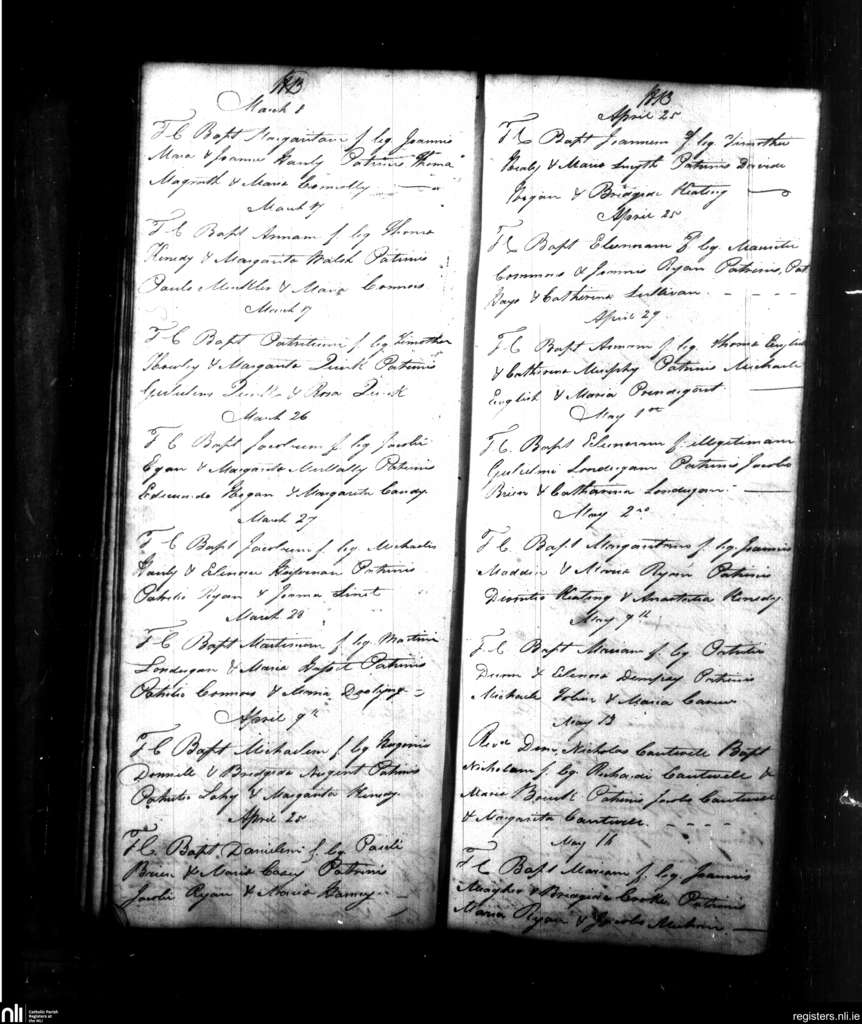 1813
March 8
F C Bapt Margaritam f. leg Joannis
Mara & Joanna Hauly Patrinis Thoma
Magrath & Maria Connolly
March 17
F C Bapt Annam f leg Thoma
Kenedy & Margarita Walsh Patrinis
Paulo Mickler & Mara Connors
March 17
F C Bapt Patritium f leg Timothei
& Margarita Quirk Patrinis
Gulielmo Quirk & Rosa Quirk
March 26
F C Bapt Jacobum f. leg Jacobi
Egan & Margarita Mullally Patrinis
Edmundo Hogan & Margarita Candy
March 27
F C Bapt Jacobum f. leg Michaelis
Hauly & Elenora Hefernan Patrinis
Patritio Ryan & Joanna
March 28
F C Bapt Martinum f. leg Martini
Londergan & Maria Patrinis
Patritio Connors & Maria Dooling
April 9th
F C Bapt Michaelem f leg
& Bridgida Nugent Patrinis
Patritio Lahy & Margarita Kenedy
April 25
F C Bapt Danielem f. leg Pauli
Brien & Maria Casey Patrinis
Jacobo Ryan & Maria
1813
April 25
F C Bapt Joannem f leg Timothei
Healy & Maria Smyth Patrinis Davide
Hogan & Bridgida Keating
April 25
F C Bapt Elenoram f leg. Mauritii
Commons & Joanna Ryan Patrinis, Pat
Hays & Catherina Sullivan
April 29
F C Bapt Annam f leg. Thoma English
& Catherina Murphy Patrinis Michaele
English & Maria Prendegast
May 1st
F C. Bapt Elenoram f. illegitimam
Gulielmi Londergan Patrinis Jacobo
Brien & Catharina Londergan
May 2nd
F C. Bapt Margaritam f. leg. Joannis
Madden & Maria Ryan Patrinis
Dionitio Keating & Anastatia Kenedy
May 9th
F C Bapt Mariam f. leg Patritii
Dunn & Elenora Dempsey Patrinis
Michaele Tobin & Maria
May 13
Revd Dean Nicholas Cantwell Bapt
Nicholam f. leg Richardi Cantwell &
Maria Bourk Patrinis Jacobo Cantwell
& Margarita Cantwell
May 16
F C Bapt Mariam f. leg Joannis
Meagher & Bridgida Cooke Patrinis
Maria Ryan & Jacobo
nli Catholic Parish
Registers at
the NLI
registers.nli.ie